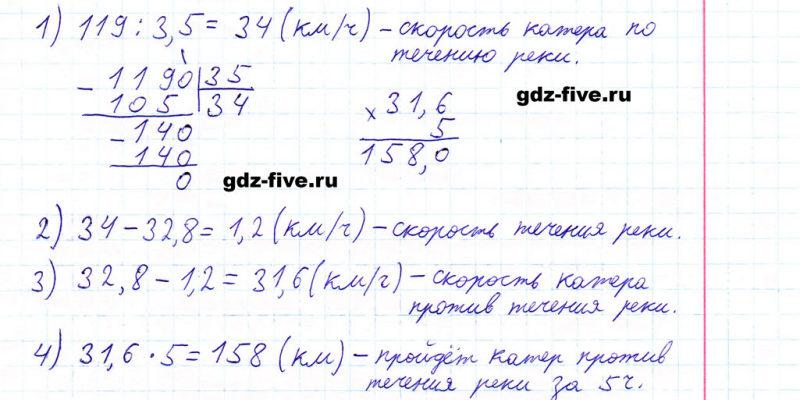 1) 119 : 3,5 = 34 (км/ч) – скорость катера по
течению реки.
– 1190 | 35
105 | 34
– 140
140
0
× 31,6
5
158,0
gdz-five.ru
gdz-five.ru
2) 34 – 32,8 = 1,2 (км/ч) – скорость течения реки.
3) 32,8 – 1,2 = 31,6 (км/ч) – скорость катера
против течения реки.
4) 31,6 · 5 = 158 (км) – пройдёт катер против
течения реки за 5 ч.